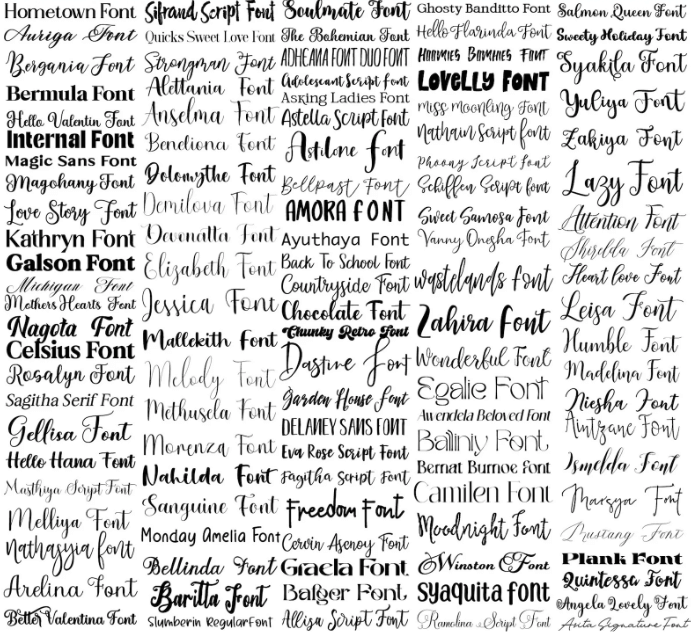 Hometown Font
Auriga Font
Bergania Font
Bermula Font
Hello Valentin Font
Internal Font
Magic Sans Font
Magohany Font
Love Story Font
Kathryn Font
Galson Font
Michigan Font
Mothers Hearts Font
Nagota Font
Celsius Font
Rosalyn Font
Sagitha Serif Font
Gellisa Font
Hello Hana Font
Marthiya Script Font
Melliya Font
Nathasyia font
Arelina Font
Better Valentina Font
Sifrand Script Font
Quicks Sweet Love Font
Strongman Font
Alettania Font
Anselma Font
Bendiona Font
Dolomythe Font
Demilova Font
Devonatta Font
Elizabeth Font
Jessica Font
Mallekith Font
Melody Font
Methusela Font
Morenza Font
Nahilda Font
Sanguine Font
Monday Amelia Font
Bellinda Font
Baritta Font
Slumberin Regular Font
Soulmate Font
The Bohemian Font
ADHEANA FONT DUO FONT
Adolescant Script Font
Asking Ladies Font
Astella Script Font
Astilone Font
Bellpast Font
AMORA FONT
Ayuthaya Font
Back To School Font
Countryside Font
Chocolate Font
Chunky Retro Font
Dastine Font
Garden House Font
DELANEY SANS FONT
Eva Rose Script Font
Fagitha Script Font
Freedom Font
Cervin Asenoy Font
Graela Font
Balger Font
Allisa Script Font
Ghosty Banditto Font
Hello Flarinda Font
Hummies Bummies Font
LOVELLY FONT
miss moonling Font
Nathain Script font
Phoony Script Font
Schiffen Script font
Sweet Samosa Font
Vanny Onesha Font
wastelands font
Zahira Font
Wonderful Font
Egalie Font
Awendela Beloved Font
Balliniy Font
Bernat Burnoe Font
Camilen Font
Moodnight Font
Winston Font
syaquita font
Ramolina Script Font
Salmon Queen Font
Sweety Holiday Font
Syakila Font
Yuliya Font
Zakiya Font
Lazy Font
Attention Font
Shirelda Font
Heart love Font
Leisa Font
Humble Font
Madelina Font
Niesha Font
Aintzane Font
Ismelda Font
Marsya Font
Mustang Font
Plank Font
Quintessa Font
Angela Lovely Font
Asita Signature Font